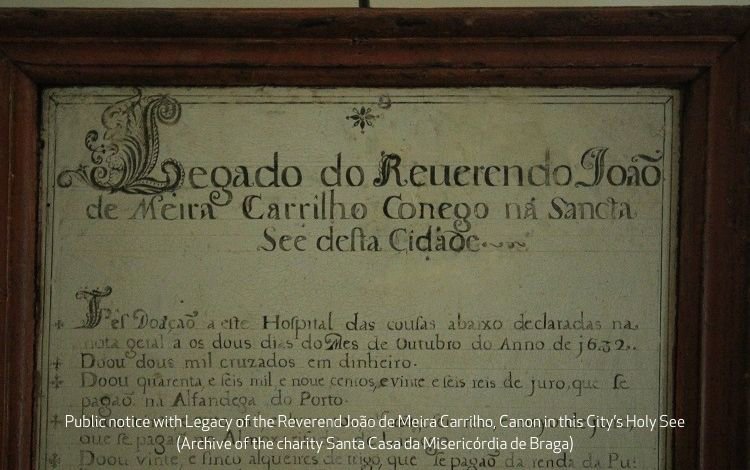 Legado do Reuerendo João
de Meira Carrilho Conego ná Sancta
See desta Cidade
Fes Doação a este Hospital das cousas abaixo declaradas na
nota geral a os dous dias do Mes de Outubro do Anno de j632..
Doou dous mil cruzados em dinheiro.
Doou quarenta, e seis mil e noue centos, e vinte e seis reis de juro, que se
pagaõ na Alfandega do Porto.
Public notice with Legacy of the Reverend João de Meira Carrilho, Canon in this City's Holy See
que se paga
(Archive of the charity Santa Casa da Misericórdia de Braga)
Doou vinte, e sinco alqueires de trigo, que se pagaõ da renda da Pu: